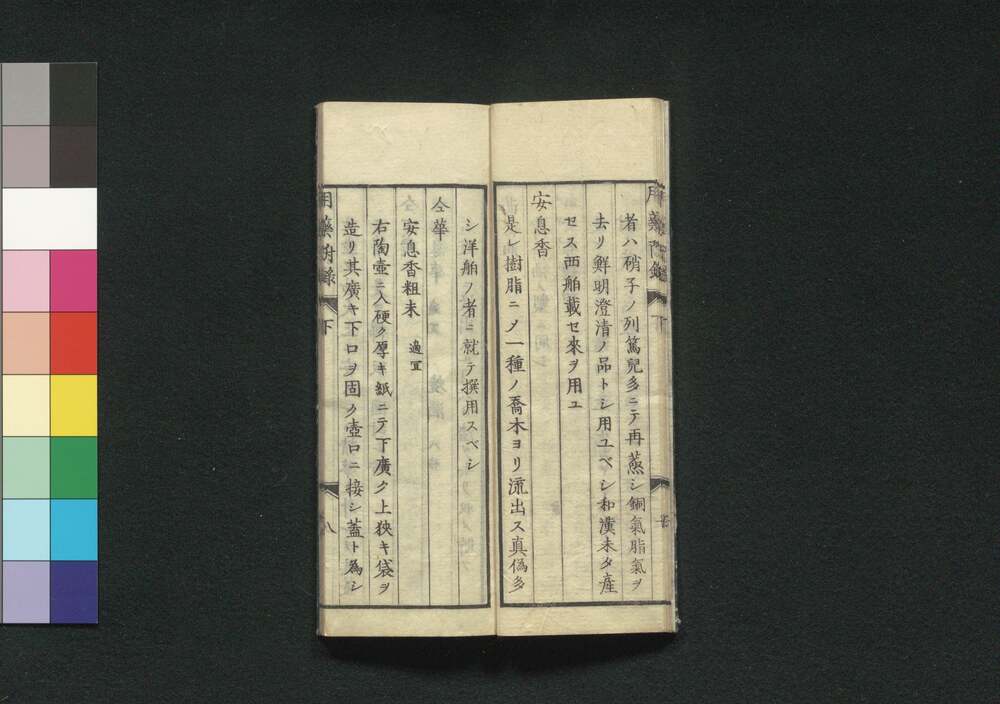 用藥附錄 下
者ハ硝子ノ列篤兒多ニテ再蒸シ銅氣脂氣ヲ
去リ鮮明澄清ノ品トシ用ユベシ和漢未タ産
セス西舶載セ來ヲ用ユ
安息香
是レ樹脂ニメ一種ノ喬木ヨリ流出ス真僞多
シ洋舶ノ者ニ就テ撰用スベシ
仝華
安息香粗末 適宜
右陶壷ニ入硬ク厚キ紙ニテ下廣ク上狹キ袋ヲ
造リ其廣キ下口ヲ固ク壷口ニ接シ蓋ト爲シ
用藥附錄 下 八